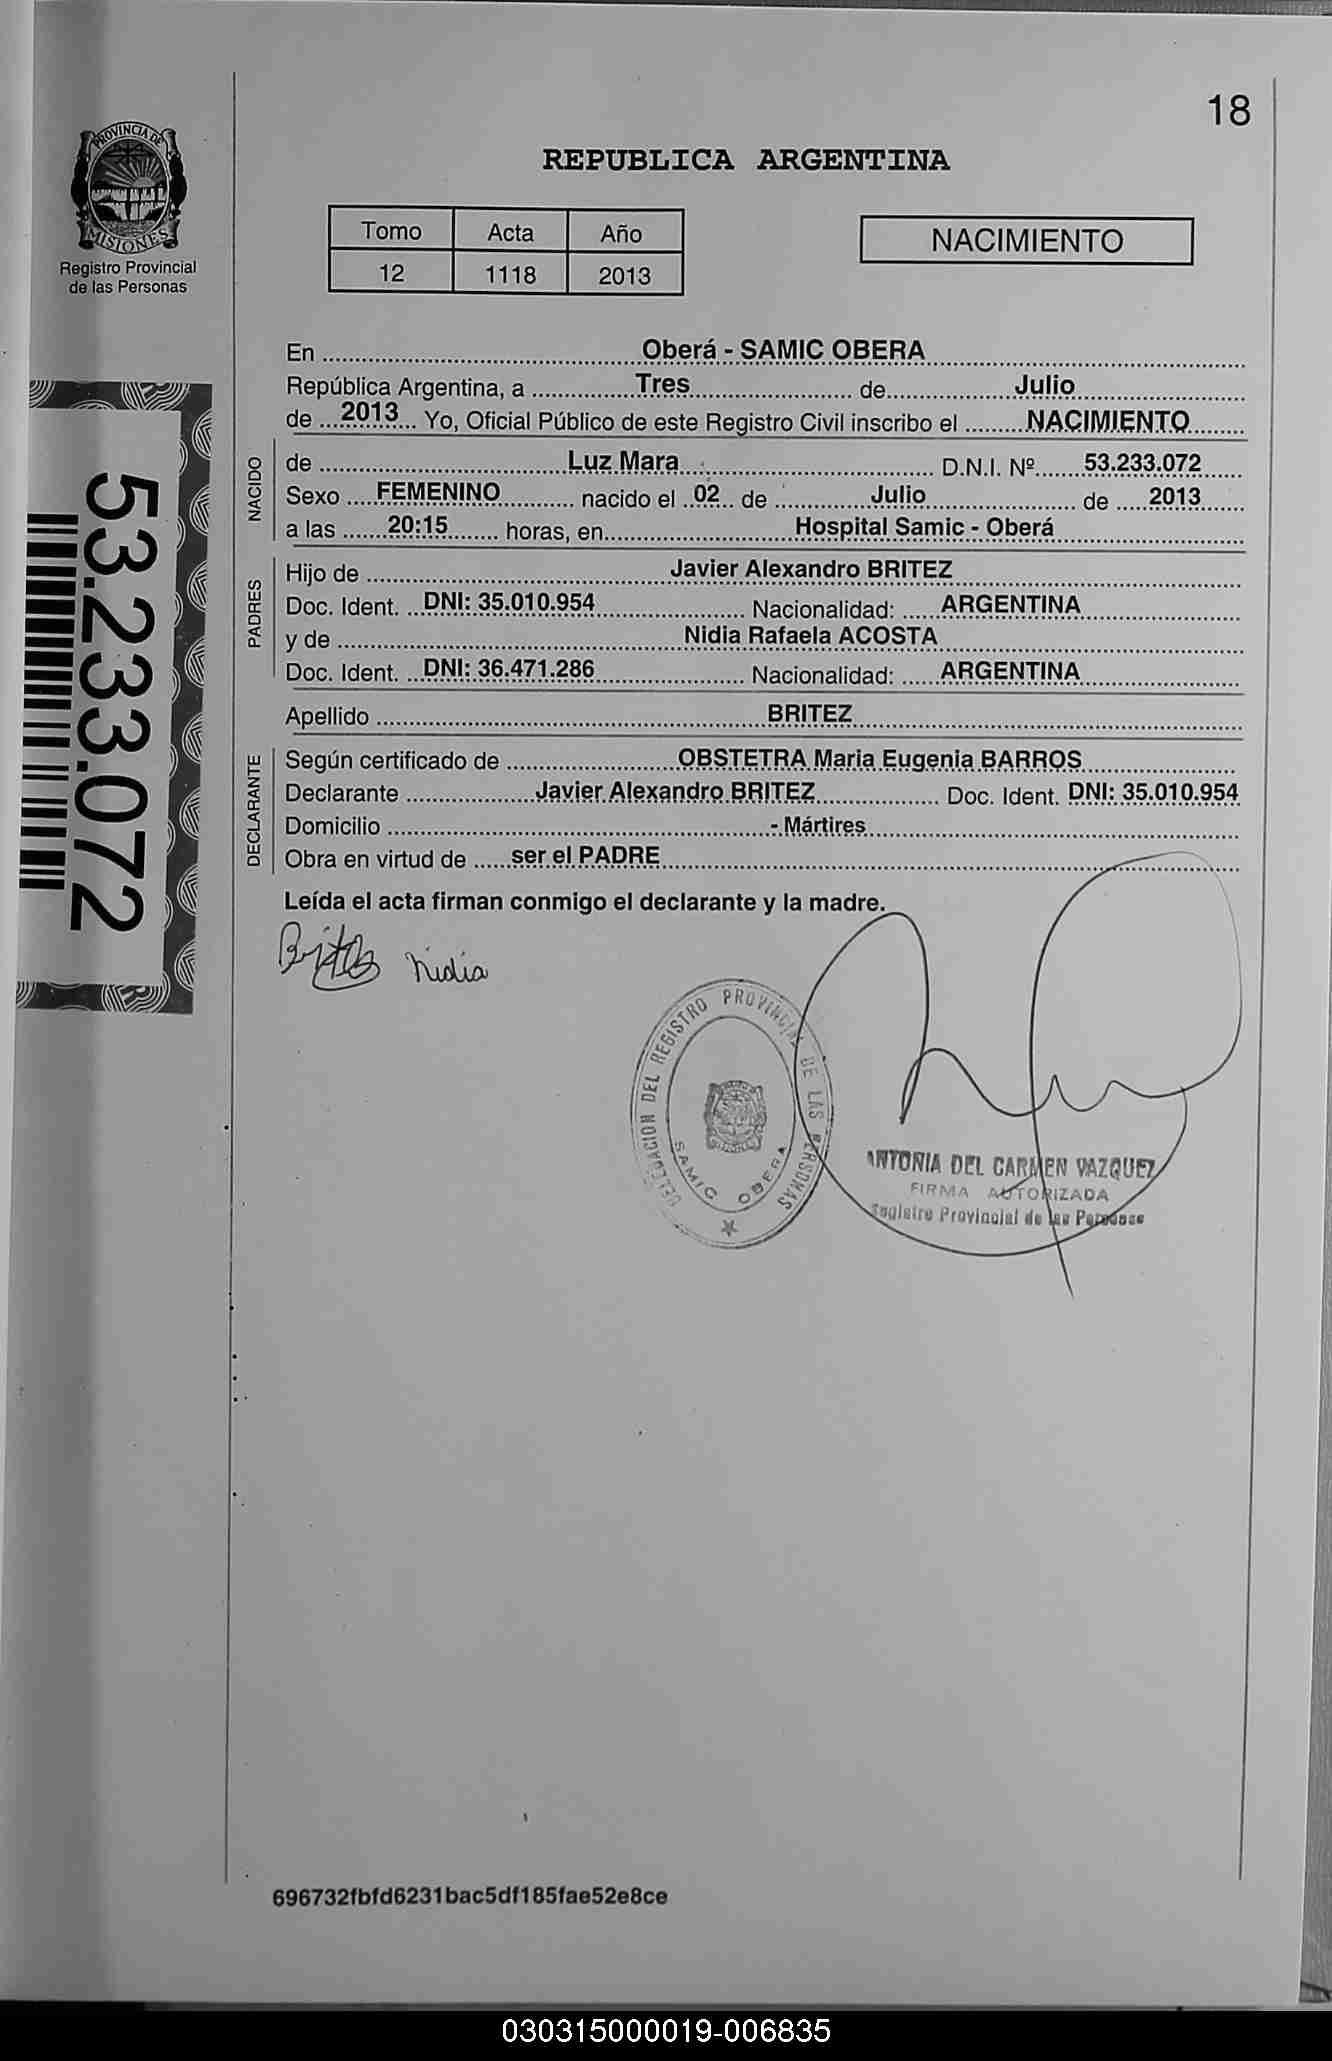 18
PROVINCIA DE
MISIONES
Registro Provincial
de las Personas
REPUBLICA ARGENTINA
Tomo Acta Año
12 1118 2013
NACIMIENTO
En Oberá - SAMIC OBERA
República Argentina, a Tres de Julio
de 2013 Yo, Oficial Público de este Registro Civil inscribo el NACIMIENTO
NACIDO
de Luz Mara D.N.I. Nº 53.233.072
Sexo FEMENINO nacido el 02 de Julio de 2013
a las 20:15 horas, en Hospital Samic - Oberá
PADRES
Hijo de Javier Alexandro BRITEZ
Doc. Ident. DNI: 35.010.954 Nacionalidad: ARGENTINA
y de Nidia Rafaela ACOSTA
Doc. Ident. DNI: 36.471.286 Nacionalidad: ARGENTINA
Apellido BRITEZ
DECLARANTE
Según certificado de OBSTETRA Maria Eugenia BARROS
Declarante Javier Alexandro BRITEZ Doc. Ident. DNI: 35.010.954
Domicilio - Mártires
Obra en virtud de ser el PADRE
Leída el acta firman conmigo el declarante y la madre.
Nidia
53.233.072
DELEGACION DEL REGISTRO PROVINCIAL DE LAS PERSONAS
SAMIC OBERA
ANTONIA DEL CARMEN VAZQUEZ
FIRMA AUTORIZADA
Registro Provincial de las Personas
696732fbfd6231bac5df185fae52e8ce
030315000019-006835